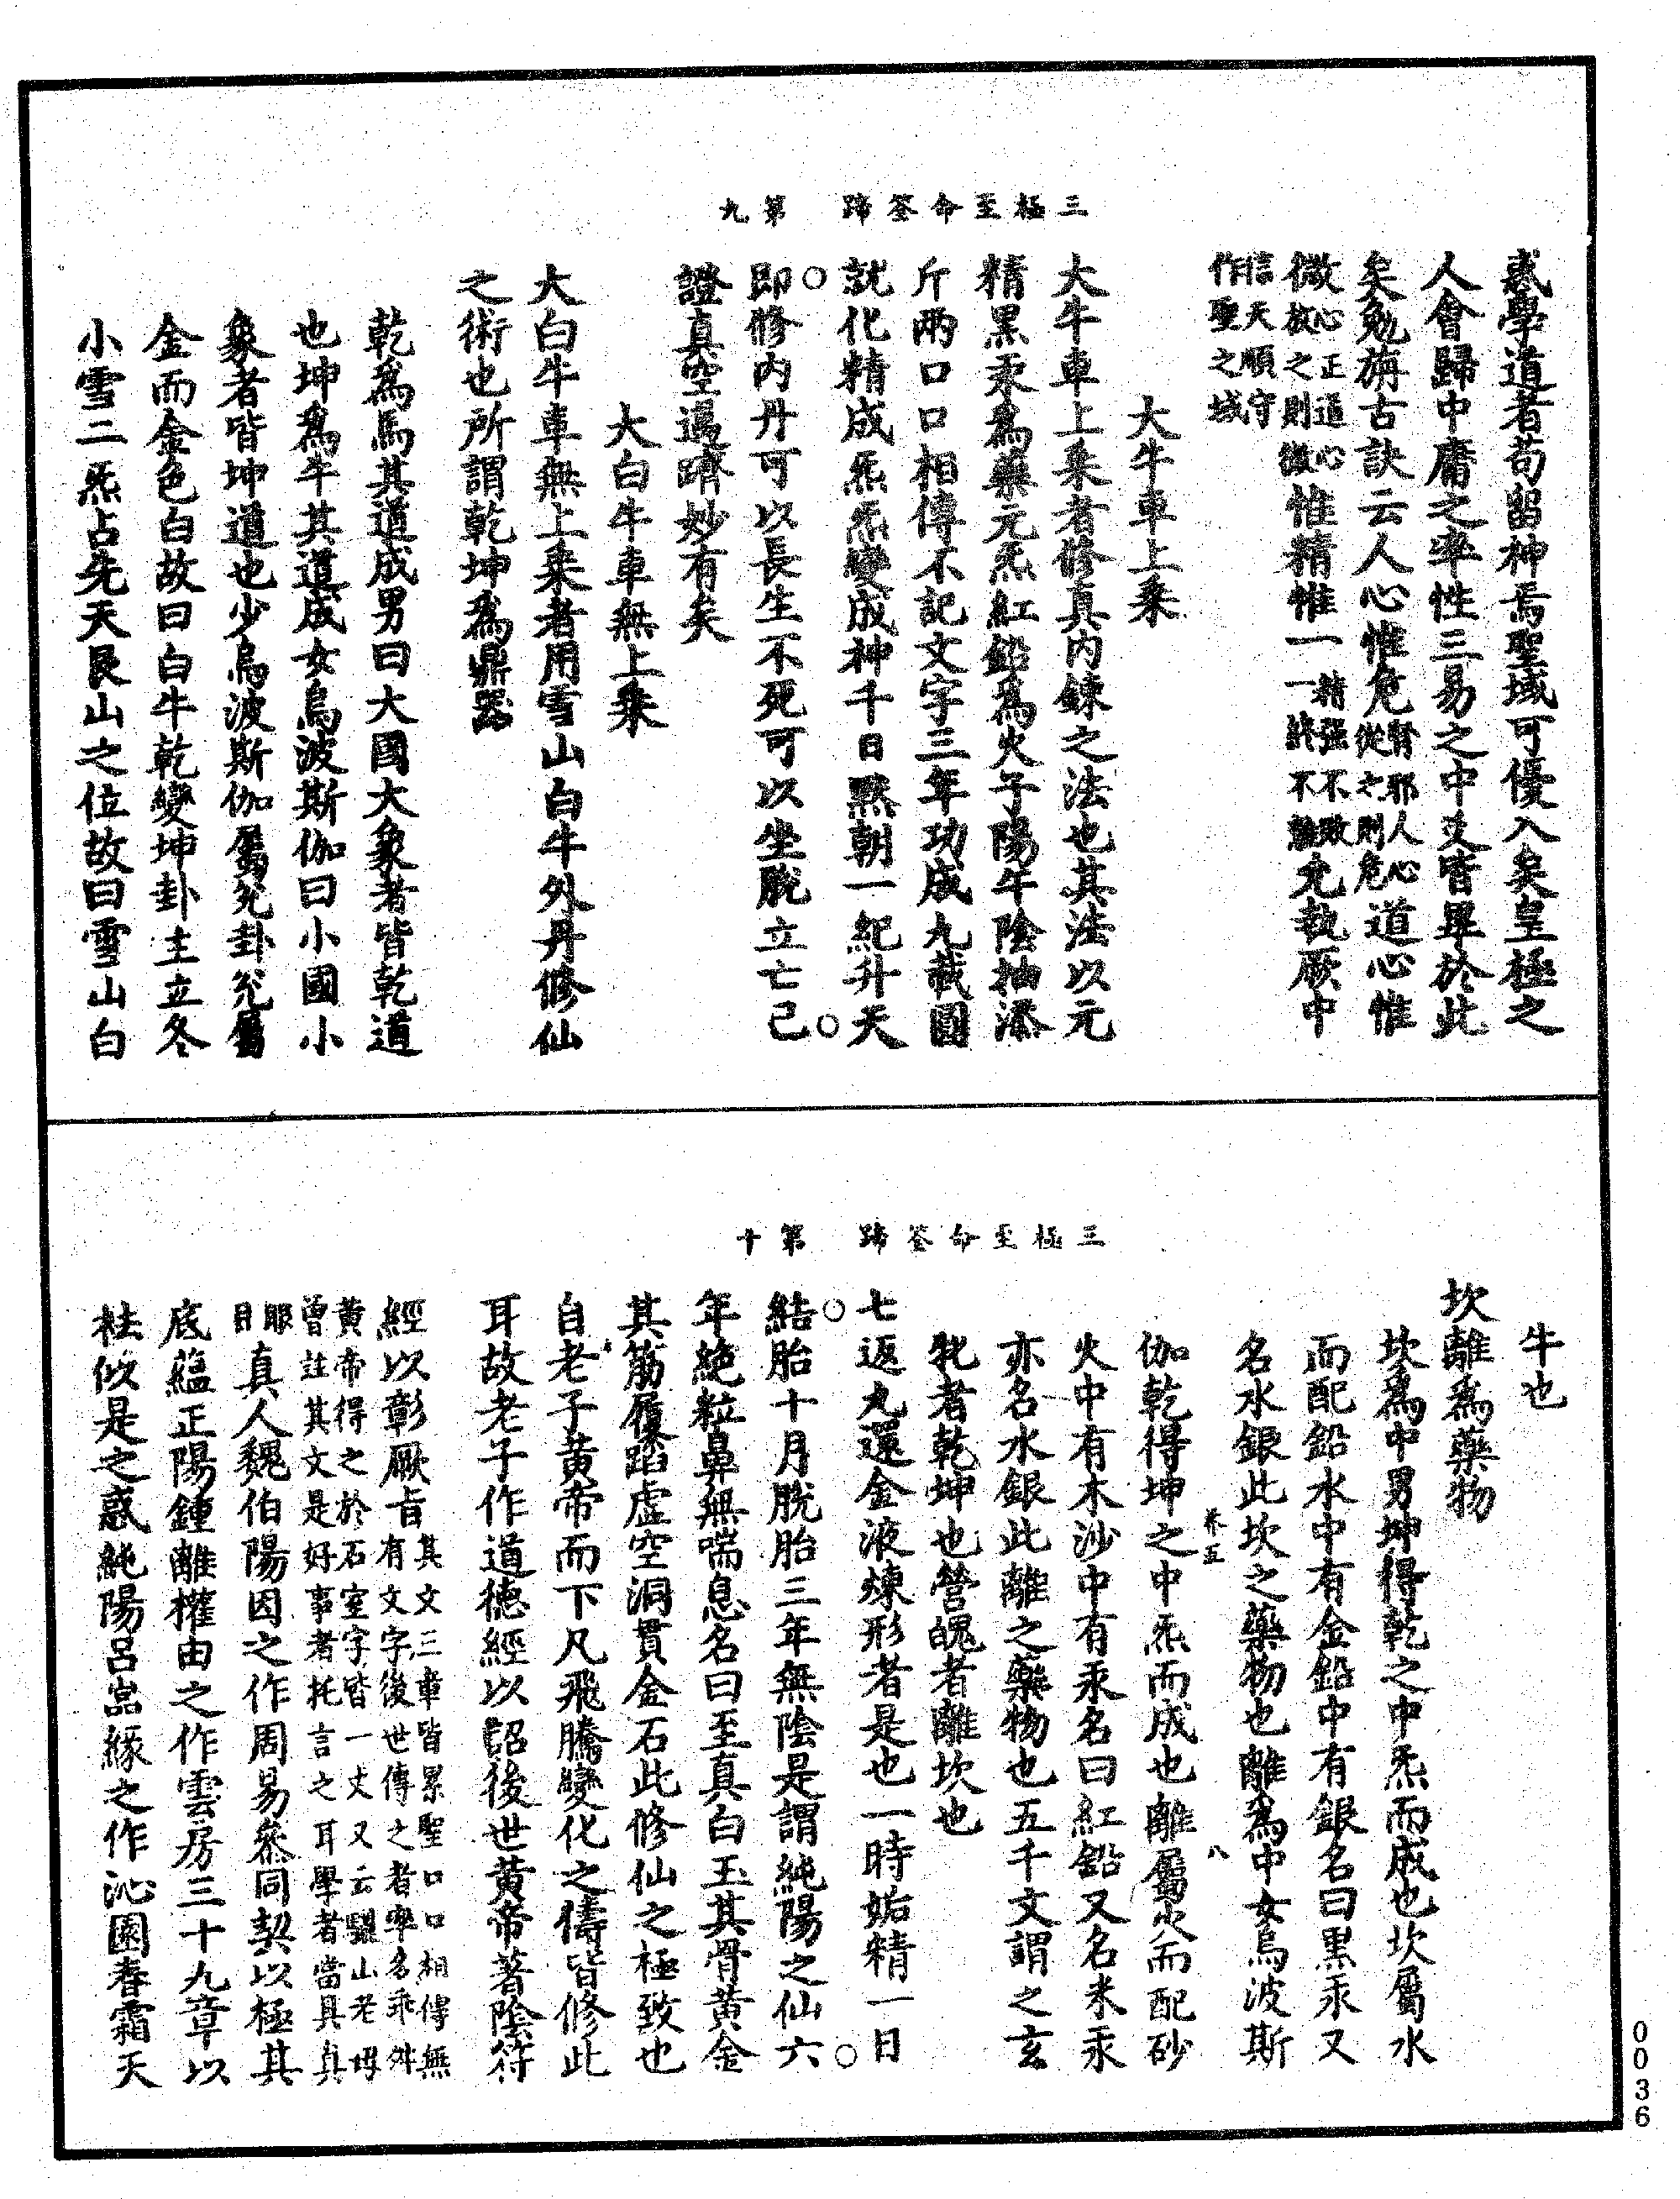 三極至命筌蹄　第九
惑學道者苟留神焉聖域可優入矣皇極之
人會歸中庸之率性三易之中爻皆畢於此
矣勉旃古訣云人心惟危腎邪人心從之則危道心惟
微心正道心放之則微惟精惟一精強不敗一終不離允執厥中
信天順守作聖之域
大牛車上乘
大牛車上乘者修真內鍊之法也其法以元
精黑汞為藥元炁紅鉛為火子陽午陰抽添
斤兩口口相傳不記文字三年功成九載圓
就化精成炁炁變成神千日黙朝一紀升天
○即修內丹可以長生不死可以坐脫立亡已○
證真空邁躋妙有矣
大白牛車無上乘
大白牛車無上乘者用雪山白牛外丹修仙
之術也所謂乾坤為鼎器
乾為馬其道成男曰大國大象者皆乾道
也坤為牛其道成女烏波斯伽曰小國小
象者皆坤道也少烏波斯伽屬兊卦兊屬
金而金色白故曰白牛乾變坤卦主立冬
小雪二炁占先天艮山之位故曰雪山白
三極至命筌蹄　第十
牛也
坎離為藥物
坎為中男坤得乾之中炁而成也坎屬水
而配鉛水中有金鉛中有銀名曰黑汞又
名水銀此坎之藥物也離為中女烏波斯
卷五　八
伽乾得坤之中炁而成也離屬火而配砂
火中有木沙中有汞名曰紅鉛又名朱汞
亦名水銀此離之藥物也五千文謂之玄
牝者乾坤也營魄者離坎也
七返九還金液煉形者是也一時姤精一日
○結胎十月脫胎三年無陰是謂純陽之仙六○
年絕粒鼻無喘息名曰至真白玉其骨黃金
其筋履蹈虛空洞貫金石此修仙之極致也
自老子黃帝而下凡飛騰變化之儔皆修此
耳故老子作道德經以詔後世黃帝著陰符
經以彰厥旨其文三車皆累聖口口相傳無有文字後世傳之者率名乖舛
黃帝得之於石室字皆一丈又云驪山老母曾註其文是好事者托言之耳學者當具真
眼目真人魏伯陽因之作周易叅同契以極其
底蘊正陽鍾離權由之作雲房三十九章以
袪似是之惑純陽呂嵓緣之作沁園春霜天
0036